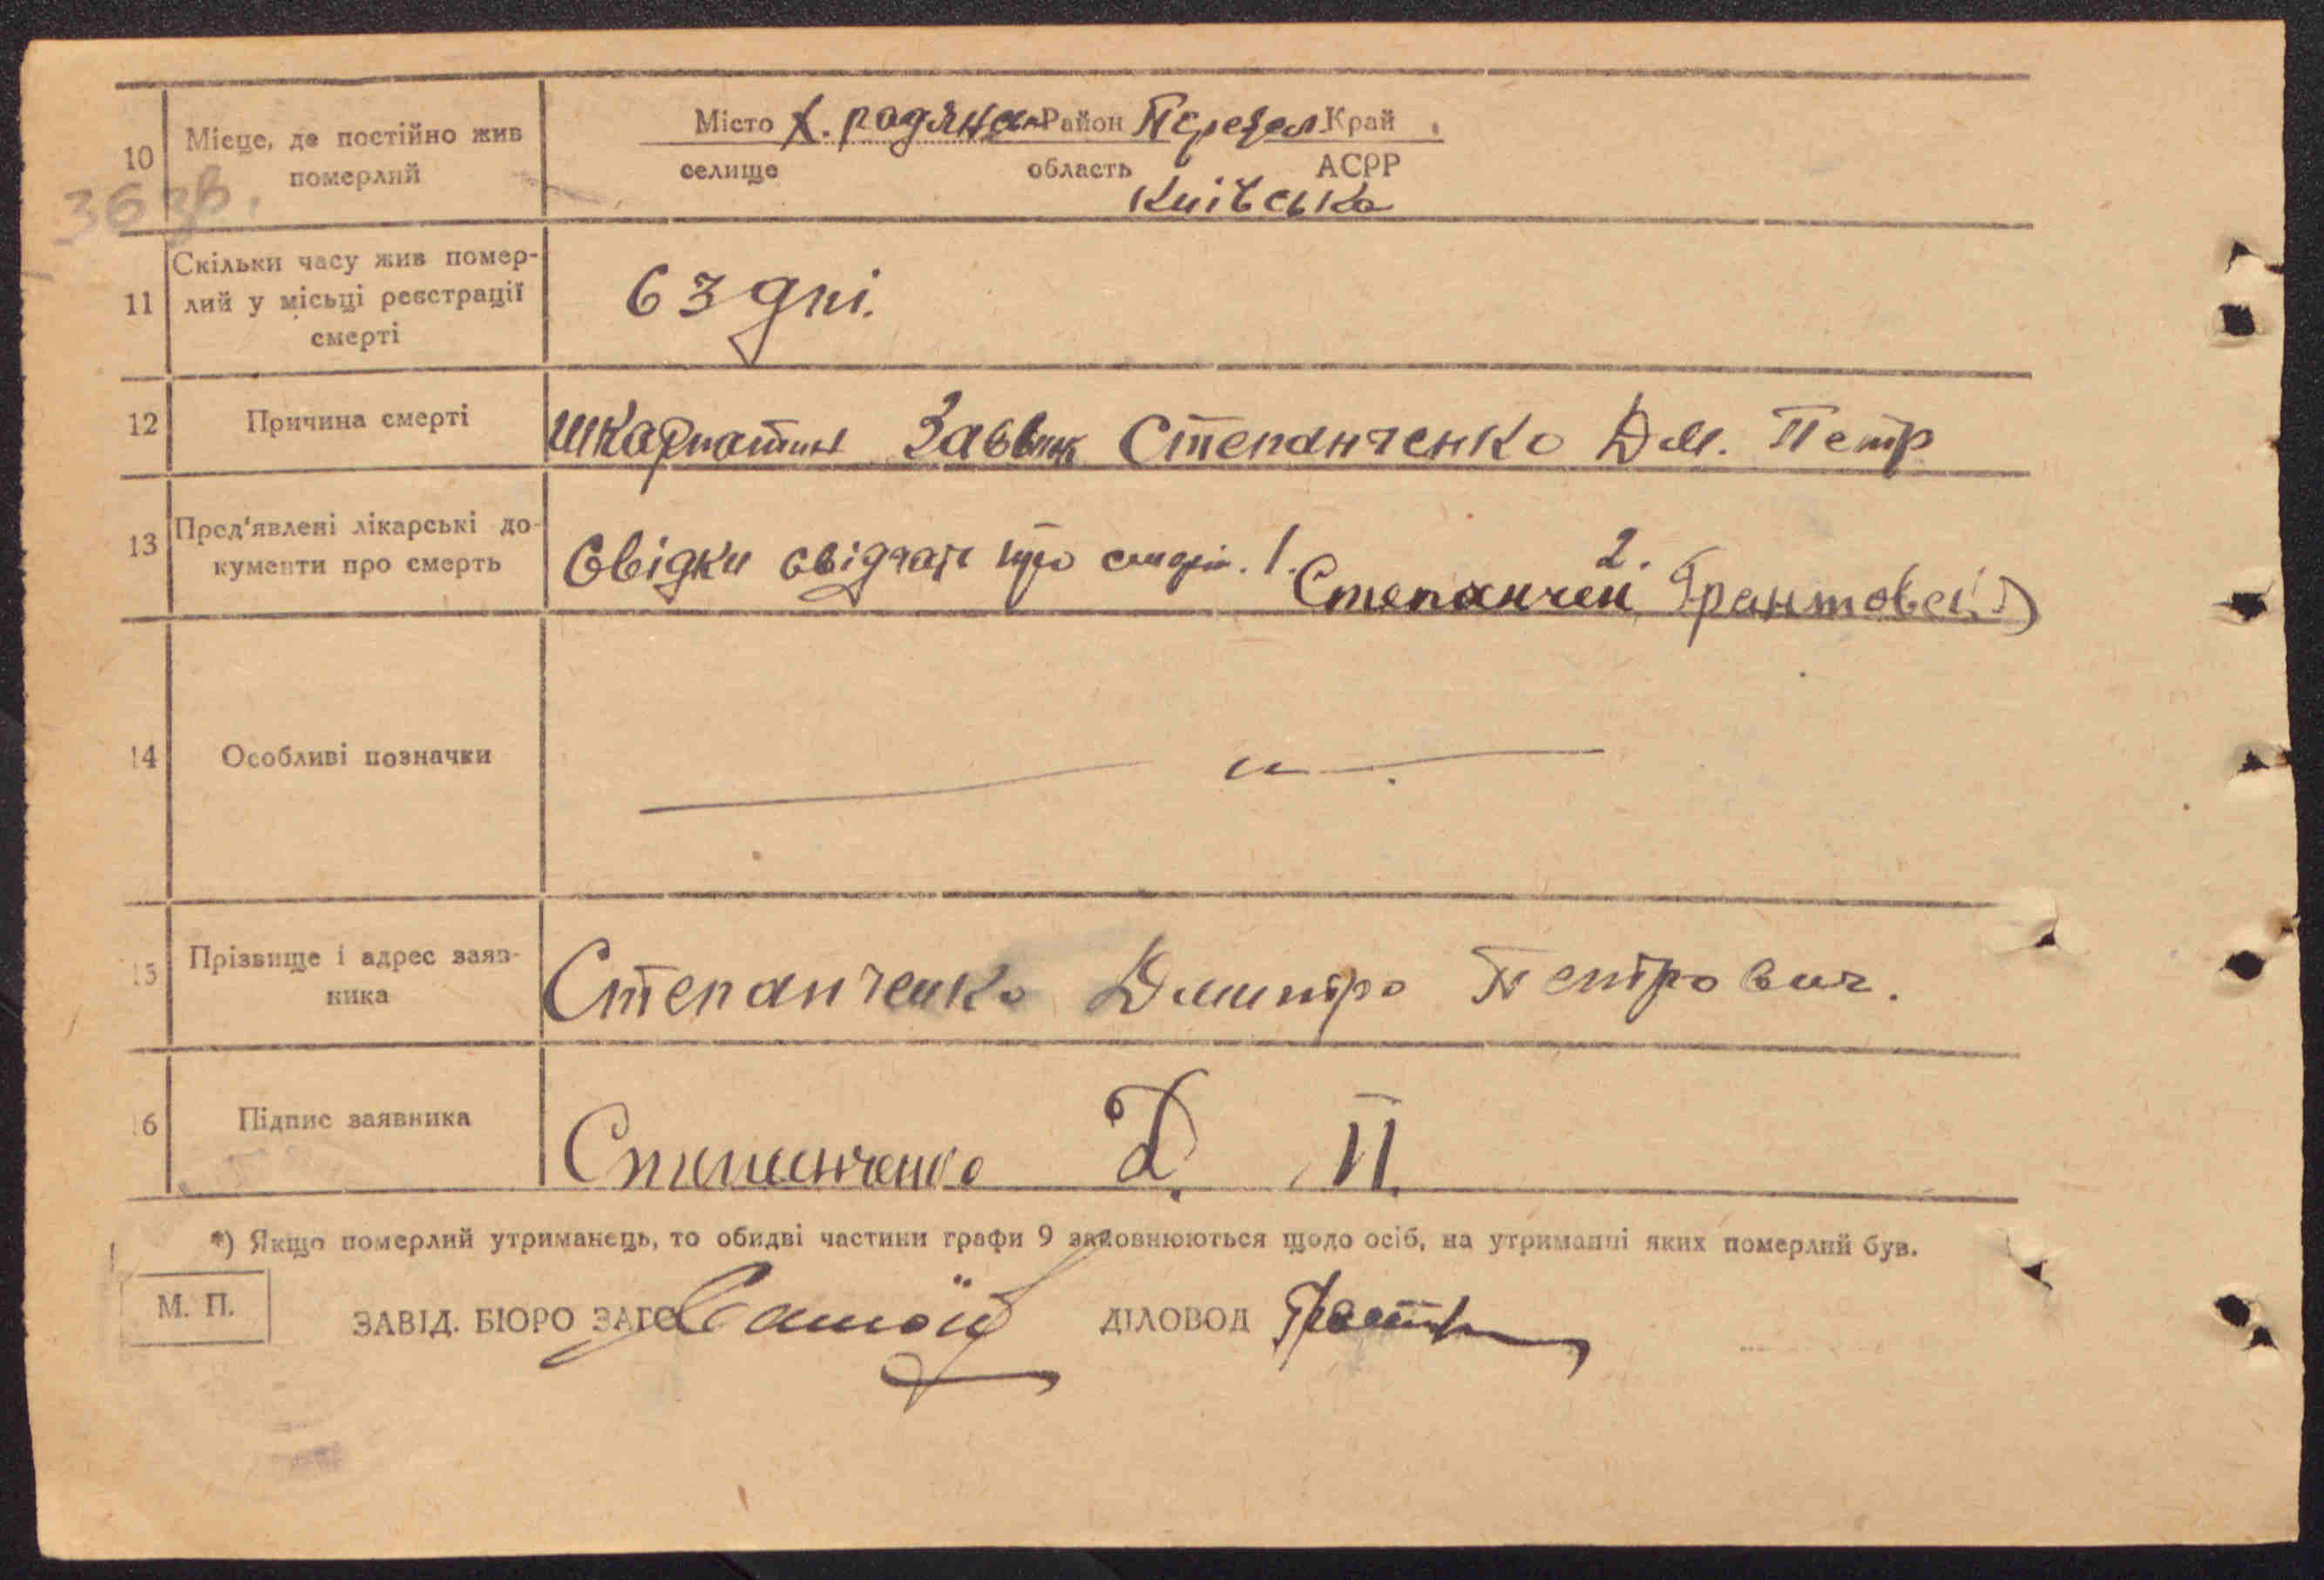 Місто Х. радянс Район Переяс. Край
10 Місце, де постійно жив померлий
селище область АСРР
Київська
36 зв.
11 Скільки часу жив помер-
лий у місьці реєстрації
смерті
63 дні.
12 Причина смерті
шкарлатин Заявник Степанченко Дм. Петр
13 Пред'явлені лікарські до-
кументи про смерть
Свідки свідчать про смерть. 1. Степанчен 2.
14 Особливі позначки
15 Прізвище і адрес заяв-
ника
Степанченко Дмитро Петрович.
16 Підпис заявника
Степанченко Д. П.
*) Якщо померлий утриманець, то обидві частини графи 9 заповнюються щодо осіб, на утриманні яких померлий був.
М. П. ЗАВІД. БЮРО ЗАГС ДІЛОВОД